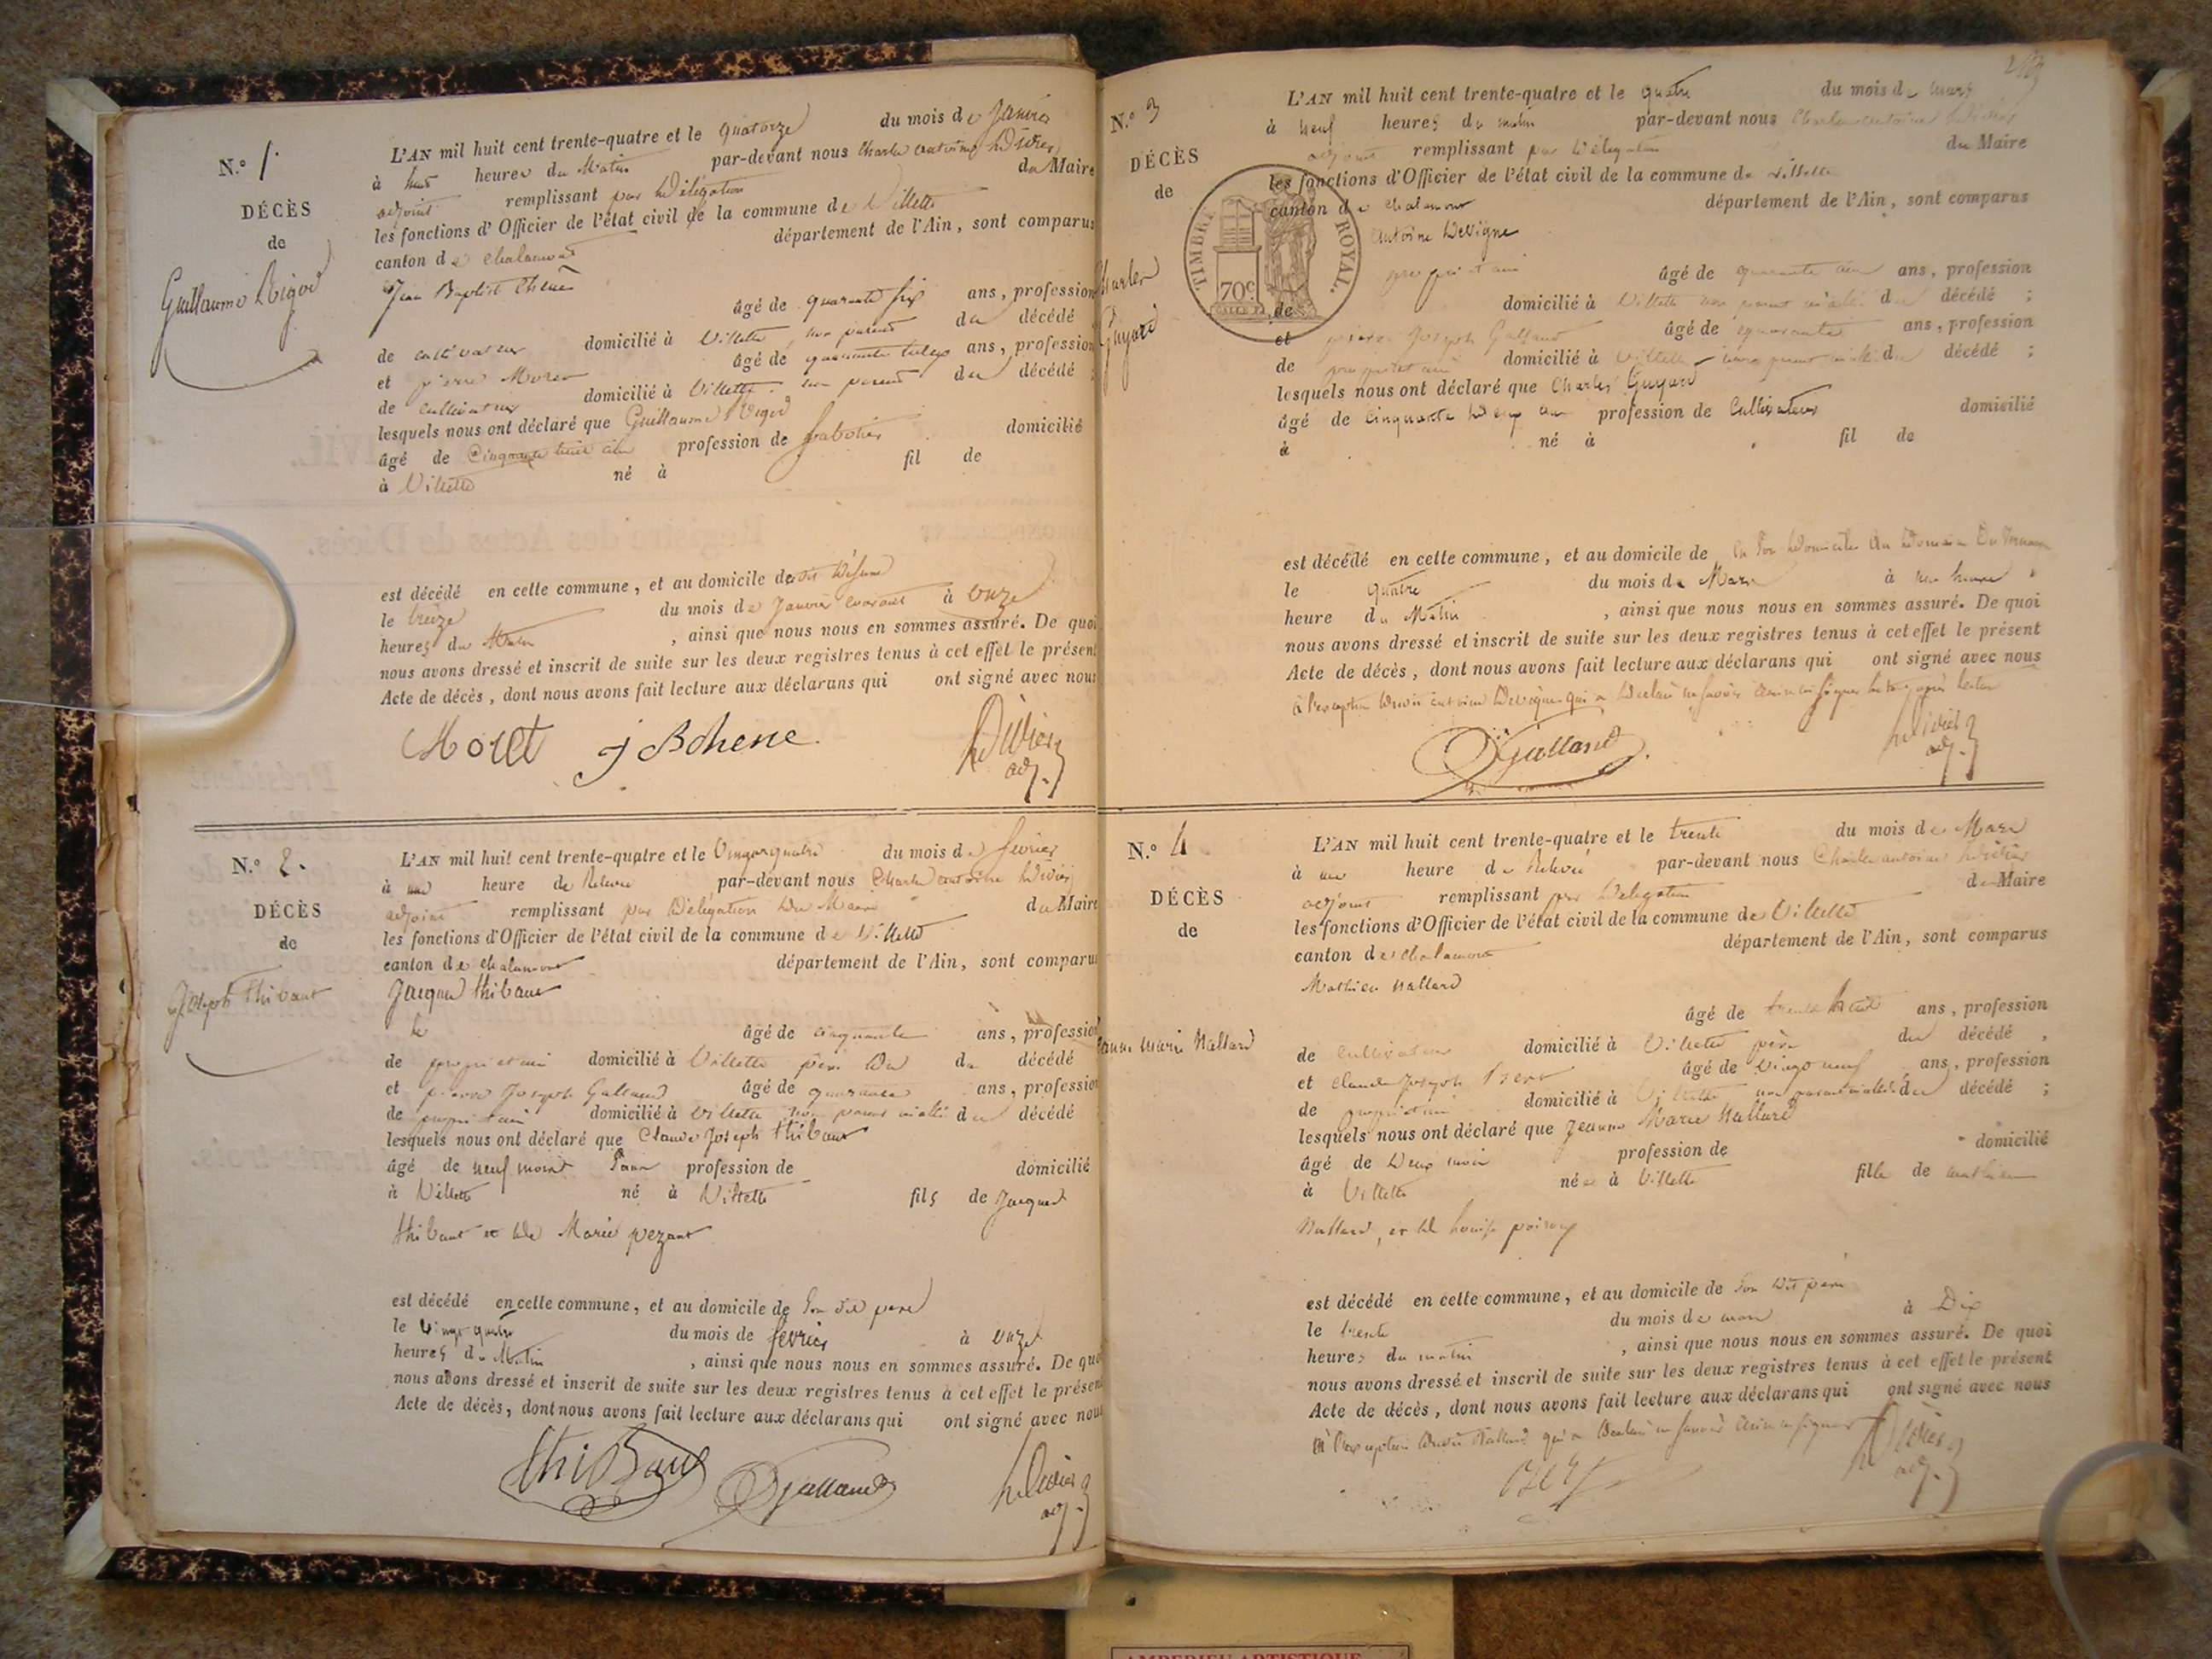 N.° 1.
DÉCÈS
de
Guillaume Rigod
L'AN mil huit cent trente-quatre et le quatorze du mois de Janvier
à huit heures du Matin par-devant nous Charle antoine
adjoint remplissant par délégation du Maire
les fonctions d'Officier de l'état civil de la commune de Villette
canton de chalamont département de l'Ain, sont comparus
Jean Baptist
âgé de quarante six ans, profession
de cultivateur domicilié à Villette, non parent du décédé
et pierre Moret âgé de quarante ans, profession
de cultivateur domicilié à Villette non parent du décédé ;
lesquels nous ont déclaré que Guillaume Rigod
âgé de Cinquante ans profession de Sabotier domicilié
à Villette né à fil de
est décédé en cette commune, et au domicile de
le treize du mois de Janvier courant à onze
heures du Matin, ainsi que nous nous en sommes assuré. De quoi
nous avons dressé et inscrit de suite sur les deux registres tenus à cet effet le présent
Acte de décès, dont nous avons fait lecture aux déclarans qui ont signé avec nous
Moret J B Chene
adj.
N.° 2.
DÉCÈS
de
Joseph thibaut
L'AN mil huit cent trente-quatre et le Vingt quatre du mois de fevrier
à une heure de Relevée par-devant nous Charle antoine
adjoint remplissant par délégation du Maire du Maire
les fonctions d'Officier de l'état civil de la commune de Villette
canton de chalamont département de l'Ain, sont comparus
Jacques thibaut
âgé de cinquante ans, profession
de proprietaire domicilié à Villette père du du décédé
et pierre Joseph Galland âgé de quarante ans, profession
de proprietaire domicilié à Villette non parent ni allié du décédé
lesquels nous ont déclaré que Claude Joseph thibaut
âgé de neuf mois profession de domicilié
à Villette né à Villette fils de Jacques
thibaut et de Marie pezant
est décédé en cette commune, et au domicile de Son dit pere
le Vingt quatre du mois de fevrier à onze
heures du Matin, ainsi que nous nous en sommes assuré. De quoi
nous avons dressé et inscrit de suite sur les deux registres tenus à cet effet le présent
Acte de décès, dont nous avons fait lecture aux déclarans qui ont signé avec nous
thiBaut Galland
adj.
N.° 3
DÉCÈS
de
Charles
Guyard
TIMBRE ROYAL.
70c
L'AN mil huit cent trente-quatre et le quatre du mois de mars
à neuf heures du matin par-devant nous Charle antoine
adjoint remplissant par délégation du Maire
les fonctions d'Officier de l'état civil de la commune de villette
canton de chalamont département de l'Ain, sont comparus
Antoine Devigne
âgé de quarante ans, profession
de proprietaire domicilié à Villette non parent ni allié du décédé ;
et pierre Joseph Galland âgé de quarante ans, profession
de proprietaire domicilié à Villette non parent ni allié du décédé ;
lesquels nous ont déclaré que Charles Guyard
âgé de cinquante deux ans profession de Cultivateur domicilié
à né à fil de
est décédé en cette commune, et au domicile de en Son domicile au domaine
le quatre du mois de Mars à une heure
heure du Matin, ainsi que nous nous en sommes assuré. De quoi
nous avons dressé et inscrit de suite sur les deux registres tenus à cet effet le présent
Acte de décès, dont nous avons fait lecture aux déclarans qui ont signé avec nous
à l'exception dudit antoine Devigne qui a declaré ne savoir signer
Galland
adj.
N.° 4
DÉCÈS
de
Jeanne Marie Nallard
L'AN mil huit cent trente-quatre et le trente du mois de Mars
à une heure de Relevée par-devant nous Charle antoine
adjoint remplissant par délégation du Maire
les fonctions d'Officier de l'état civil de la commune de Villette
canton de chalamont département de l'Ain, sont comparus
Mathieu Nallard
âgé de trente huit ans, profession
de cultivateur domicilié à Villette père du décédé,
et Claude Joseph âgé de vingt neuf ans, profession
de proprietaire domicilié à Villette non parent ni allié du décédé ;
lesquels nous ont déclaré que Jeanne Marie Nallard
âgé de Deux mois profession de domicilié
à Villette née à Villette fille de mathieu
Nallard, et de Louise
est décédé en cette commune, et au domicile de Son dit pere
le trente du mois de mars à Dix
heures du matin, ainsi que nous nous en sommes assuré. De quoi
nous avons dressé et inscrit de suite sur les deux registres tenus à cet effet le présent
Acte de décès, dont nous avons fait lecture aux déclarans qui ont signé avec nous
à l'exception dudit Nallard qui a declaré ne savoir signer
adj.